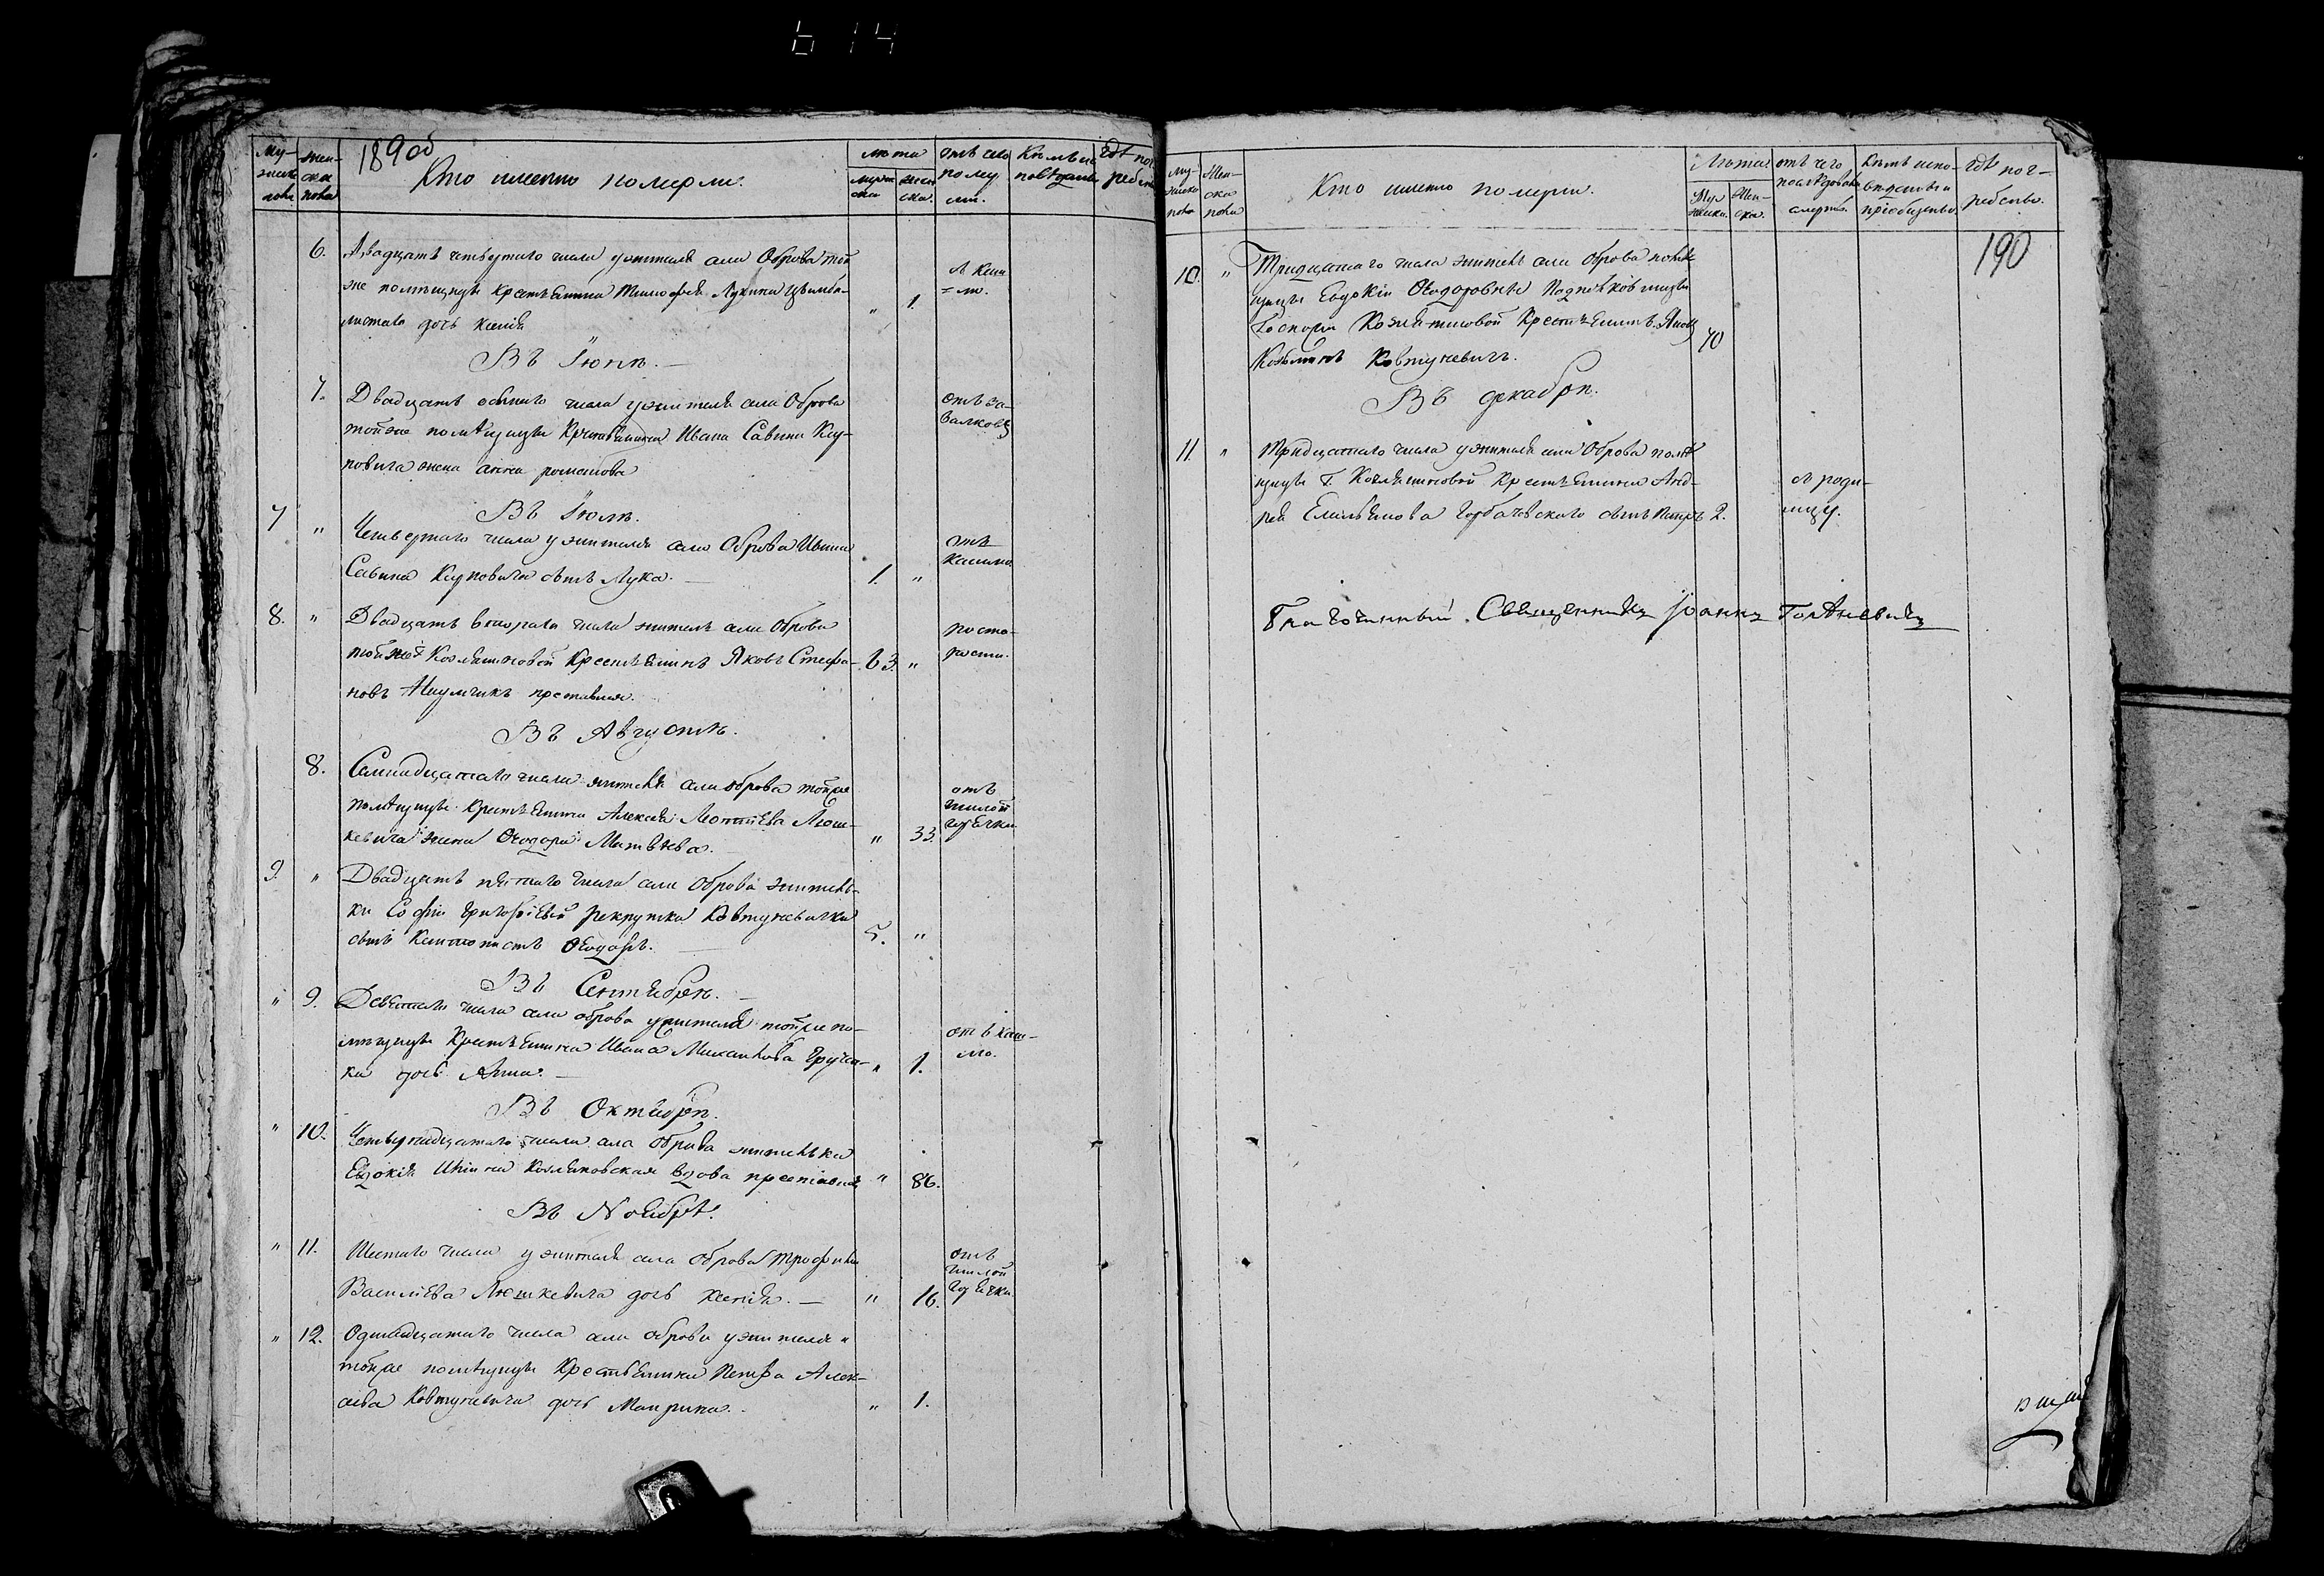 614
189об
Му-
жеска
пола
жен-
ска
пола
Кто именно померли.
лета
мужес
ска
женс
ска.
отъ чего
поме
ли.
Кемъ ис
поведаны
где пог
ребены
6. Двадцать четвертаго числа у жителя села Оброва той
же помещицы крестьянина Тимофея Лукина
дочь Ксенія " 1.
Въ Іюне.
7. Двадцать осьмаго числа у жителя села Оброва
тойже помещицы Крестьянина Ивана Савина Кку-
повича жена анна романова
отъ за-
валковъ
Въ Іюле.
7 " Четвертаго числа у жителя села Оброва Ивана
Савина Куповича сынъ Лука. 1. "
отъ
кашлю
8. " Двадцать втораго числа житель села Оброва
тойже Козляиновой Крестьянинъ Яковъ Стефа- 63. "
новъ Наумчикъ преставися.
по ста-
рости.
Въ Августе.
8. Семнадцатаго числа жителя села оброва тойже
помещицы Крестьянина Алексея Люш-
кевича жена Ѳеодора Матвеева. " 33.
отъ
гнилой
горячки
9. " Двадцать пятаго числа села Оброва житель-
ки Софіи григорієвой рекрутки Ковтуневички
сынъ Кантонистъ Ѳеодоръ. 5. "
Въ Сентябре.
" 9. Девятаго числа села оброва у жителя тойже по-
мещицы Крестьянина Ивана Михайлова
ки дочь Анна. " 1.
отъ каш-
лю.
Въ Октябре.
" 10. Четырнадцатаго числа села Оброва жителька
Евдокія вдова преставися " 86.
Въ Ноябре.
" 11. Шестаго числа у жителя села Оброва Трофима
Василієва Люшкевича дочь Ксенія. " 16.
отъ
гнилой
горячки
" 12. Одинадцатаго числа села оброва у жителя
тойже помещицы Крестьянина Петра Алек-
сеева Ковтуневича дочь Марина. " 1.
му-
жеска
пола
Жен-
ска
пола
Кто именно померли.
Лета
Муж
жеска.
Жен-
ска.
отъ чего
последовала
смерть.
Кемъ испо-
веданы и
пріобщены.
где пог-
ребены.
190
10. " Тридцатаго числа житель села Оброва поме
щицы Евдокіи Ѳеодоровны Подполковницы
Госпожи Козляиновой Крестьянинъ
Козьминъ Ковтуневичъ. 70
Въ декабре.
11 " Тридцатаго числа у жителя села Оброва поме
щицы Г. Козляиновой Крестьянина Анд-
рея Емельянова Горбачевского сынъ Петръ 2.
въ роди-
мцу.
Благочинный Священникъ Іоаннъ